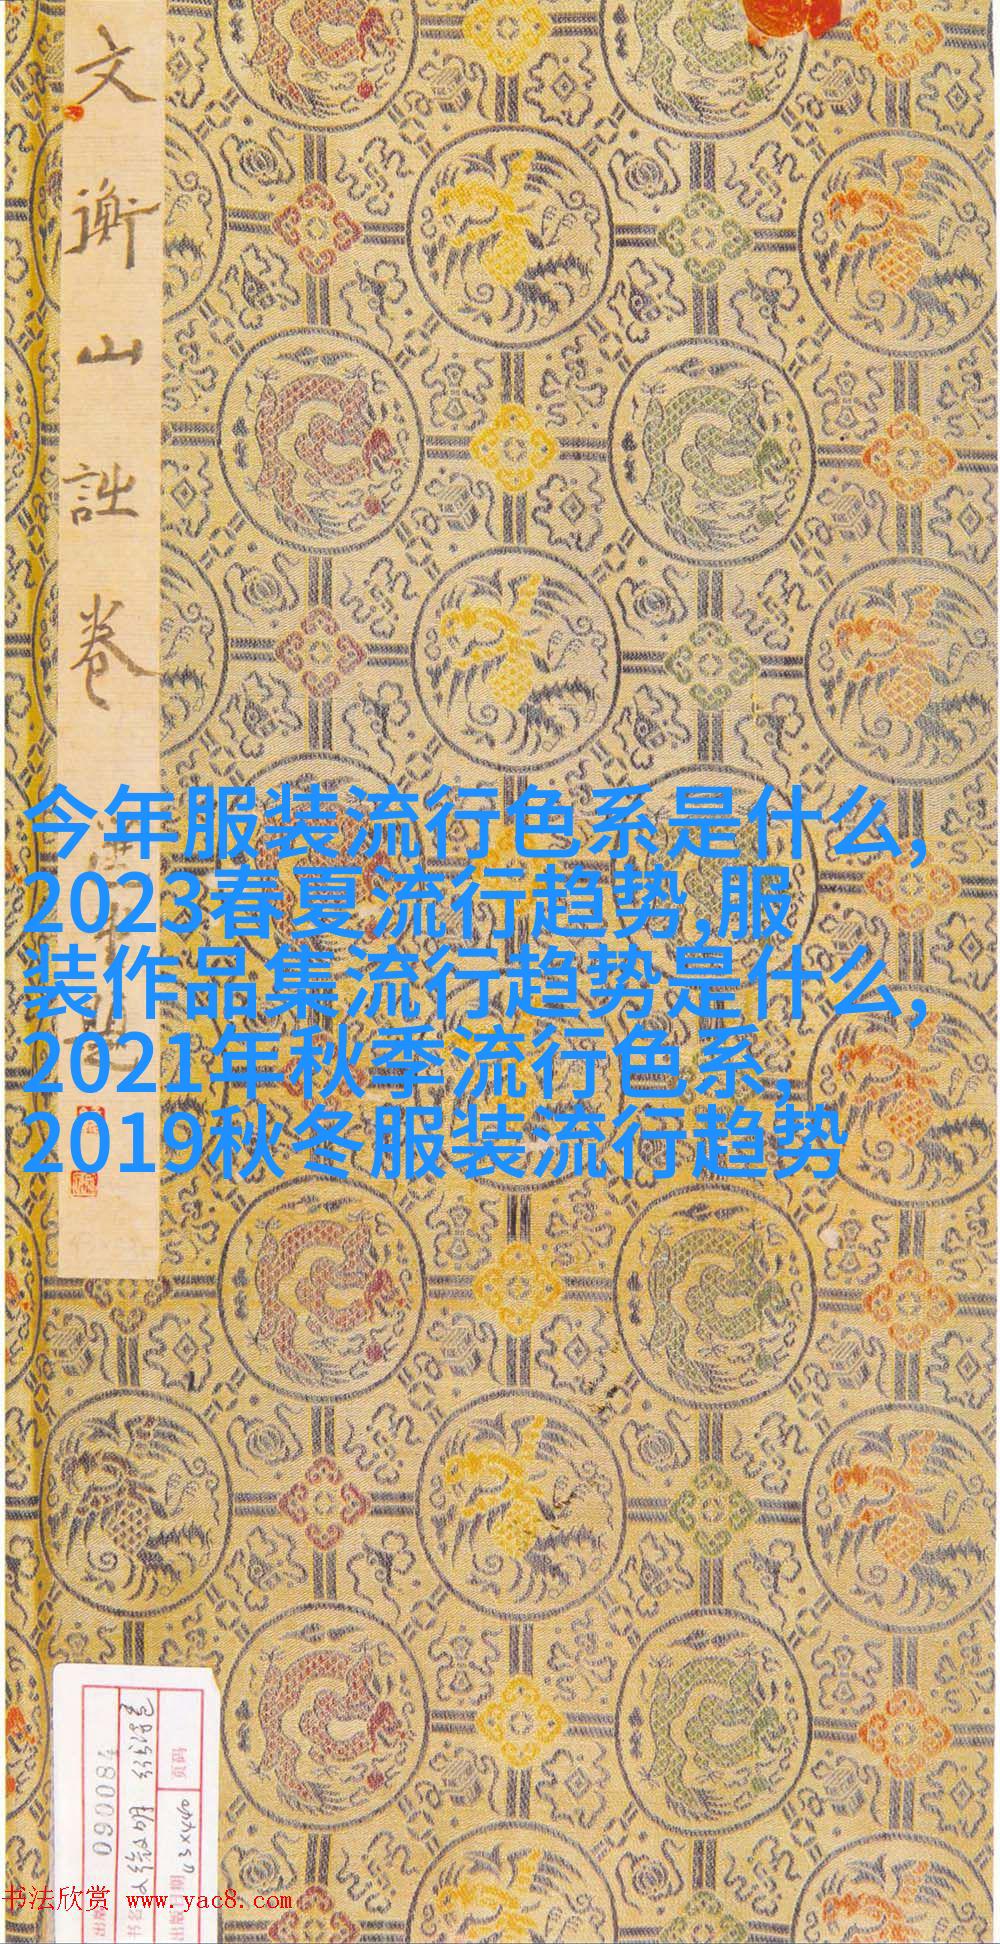 文衡山詩卷
今年服装流行色系是什么,
2023春夏流行趋势,服
装作品集流行趋势是什么,
2021年秋季流行色系,
2019秋冬服装流行趋势
090084
页码
43x440
书法欣赏 www.yac8.com